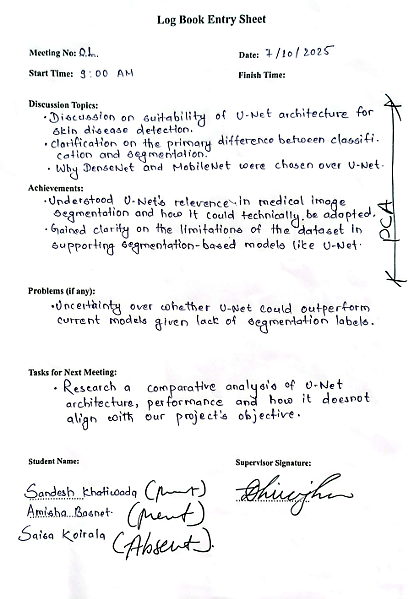 Log Book Entry Sheet
Meeting No: 01.
Date: 7/10/2025
Start Time: 9:00 AM
Finish Time:
Discussion Topics:
• Discussion on suitability of U-Net architecture for
skin disease detection.
• Clarification on the primary difference between classifi-
cation and segmentation.
• Why DenseNet and MobileNet were chosen over U-Net.
Achievements:
• Understood U-Net's relevence in medical image
segmentation and how it could technically be adapted.
• Gained clarity on the limitations of the dataset in
supporting segmentation-based models like U-Net.
PCA
Problems (if any):
• Uncertainty over whether U-Net could outperform
current models given lack of segmentation labels.
Tasks for Next Meeting:
• Research a comparative analysis of U-Net
architecture, performance and how it doesnot
align with our project's objective.
Student Name:
Supervisor Signature:
Sandesh Khatiwada (Present)
Amisha Basnet (Present)
Saisa Koirala (Absent).